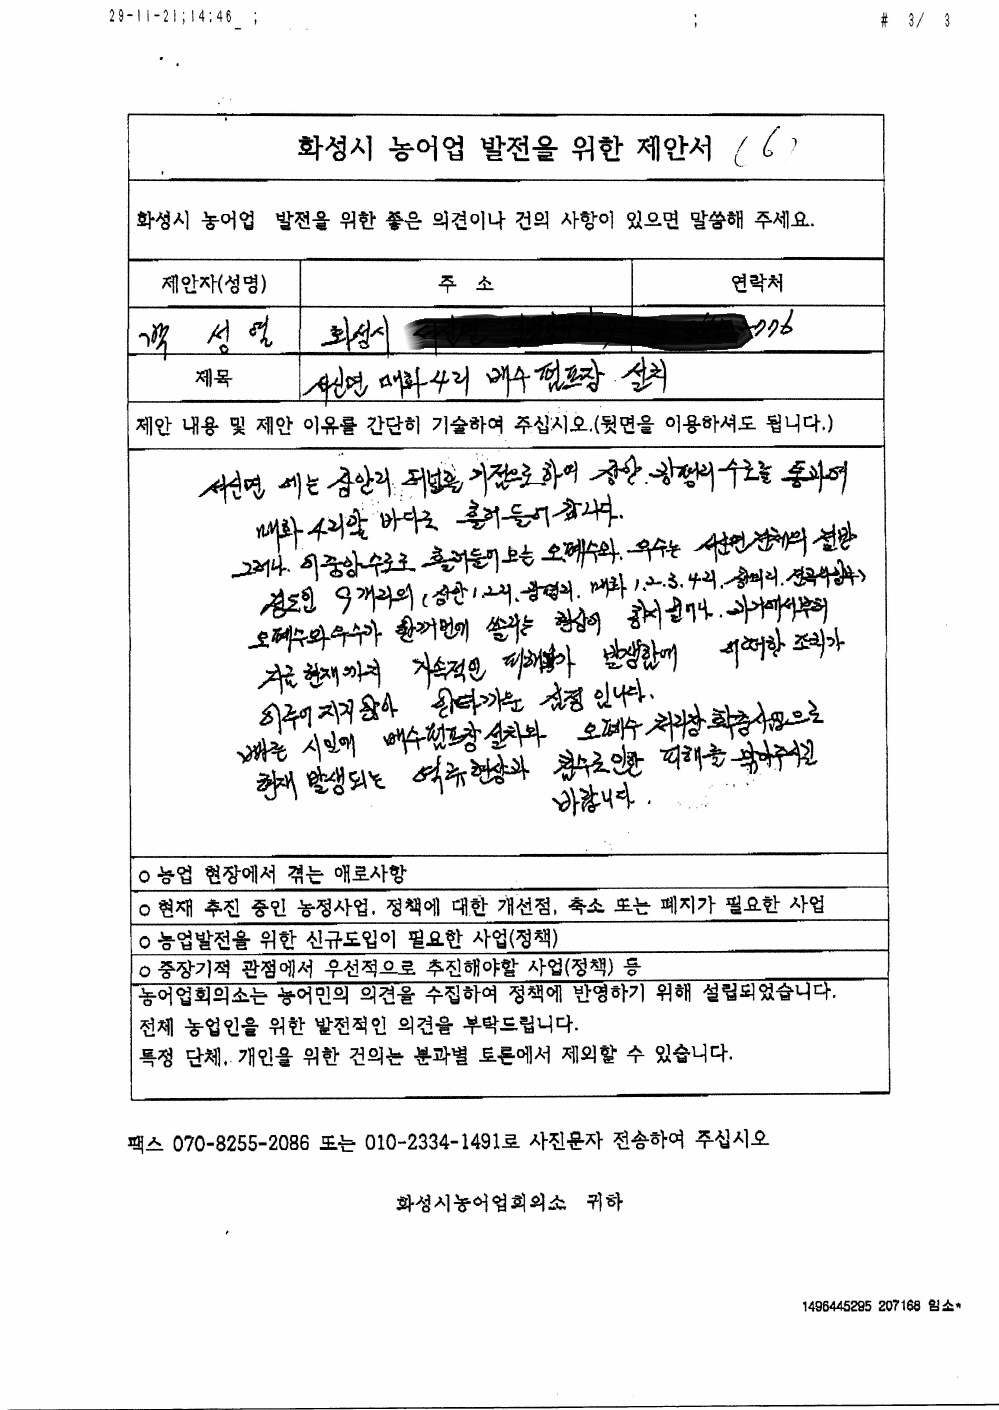 29-11-21;14:46_ ; ; # 3/ 3
화성시 농어업 발전을 위한 제안서 (6)
화성시 농어업 발전을 위한 좋은 의견이나 건의 사항이 있으면 말씀해 주세요.
제안자(성명) 주 소 연락처
백 성 열 화성시
제목 서신면 매화 4리 배수 펌프장 설치
제안 내용 및 제안 이유를 간단히 기술하여 주십시오.(뒷면을 이용하셔도 됩니다.)
서신면 에는 터널을 기점으로 하여 장안. 광평리 수로를 통과하여
매화 4리앞 바다로 흘러 들어 갑니다.
그러나. 이 중앙수로로 흘러들어 오는 오폐수와. 우수는 서신면 전체의 절반
정도인 9개리의 (장안 1.2리. 광평리. 매화 1.2.3.4리. 일부)
오폐수와 우수가 한꺼번에 쏠리는 현상이 과거에서부터
지금 현재까지 지속적인 피해가 발생함에 어떠한 조치가
이루어 지지 않아 안타까운 실정 입니다.
빠른 시일에 배수펌프장 설치와 오폐수 처리장 확충사업으로
현재 발생되는 역류현상과 침수로 인한 피해를 막아주시길
바랍니다.
○ 농업 현장에서 겪는 애로사항
○ 현재 추진 중인 농정사업, 정책에 대한 개선점, 축소 또는 폐지가 필요한 사업
○ 농업발전을 위한 신규도입이 필요한 사업(정책)
○ 중장기적 관점에서 우선적으로 추진해야할 사업(정책) 등
농어업회의소는 농어민의 의견을 수집하여 정책에 반영하기 위해 설립되었습니다.
전체 농업인을 위한 발전적인 의견을 부탁드립니다.
특정 단체, 개인을 위한 건의는 분과별 토론에서 제외할 수 있습니다.
팩스 070-8255-2086 또는 010-2334-1491로 사진문자 전송하여 주십시오
화성시농어업회의소 귀하
1496445295 207168 임소*